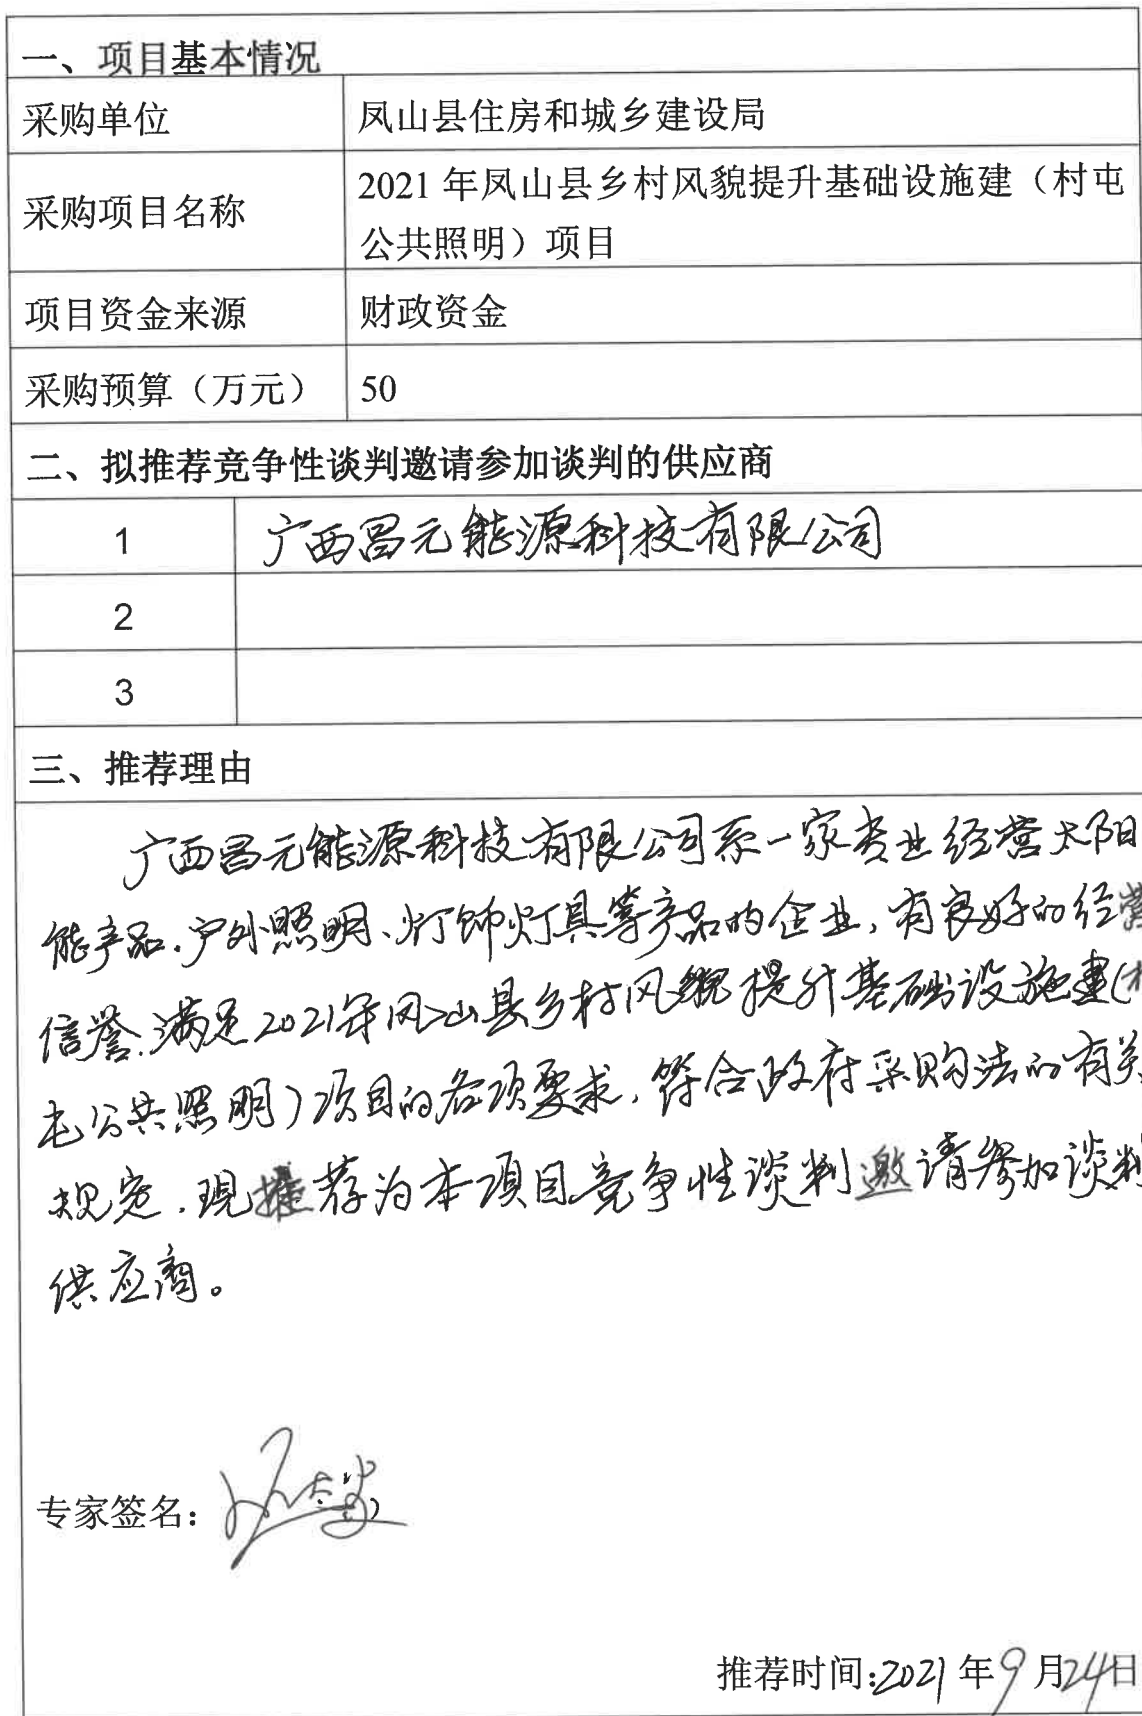 一、项目基本情况
采购单位
凤山县住房和城乡建设局
采购项目名称
2021年凤山县乡村风貌提升基础设施建（村屯
公共照明）项目
项目资金来源
财政资金
采购预算（万元）
50
二、拟推荐竞争性谈判邀请参加谈判的供应商
1
广西昌元能源科技有限公司
2
3
三、推荐理由
广西昌元能源科技有限公司系一家专业经营太阳
能产品、户外照明、灯饰灯具等产品的企业，有良好的经营
信誉.满足2021年凤山县乡村风貌提升基础设施建(村
屯公共照明)项目的各项要求，符合政府采购法的有关
规定.现推荐为本项目竞争性谈判邀请参加谈判
供应商。
专家签名：
推荐时间:2021年9月24日